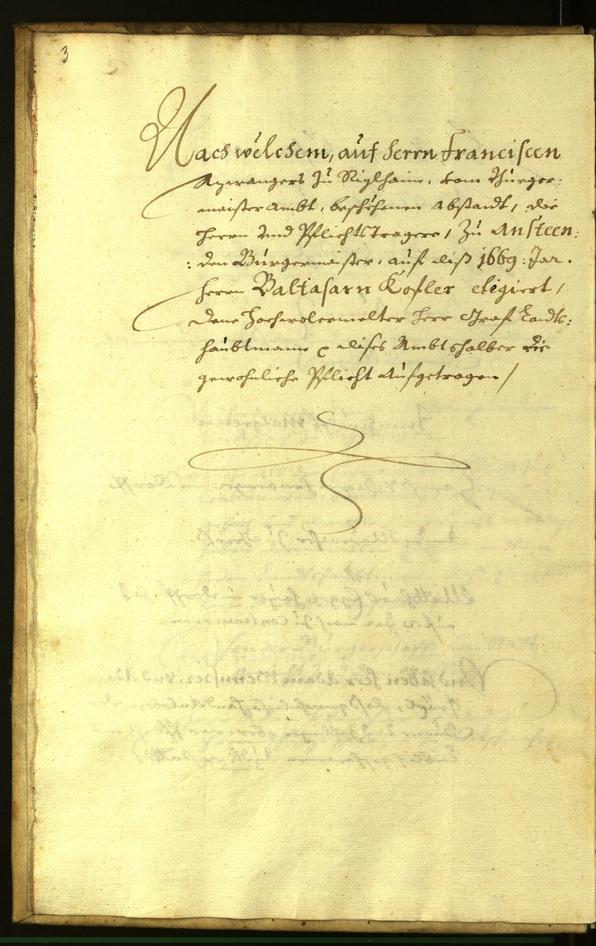 3
Nachwelchem, auf Herrn Franciscen
zu Riglhaim, vom Burger=
maister Ambt, beschehenen Abstandt, die
Herrn und Pflichtstragere, zu
den Burgermaister, auf diß 1669: Jar.
Herrn Baltasarn Kofler eligiert,
deme Herr Graf Landts:
haubtmann p dises Ambts halber die
gewohnliche Pflicht aufgetragen /